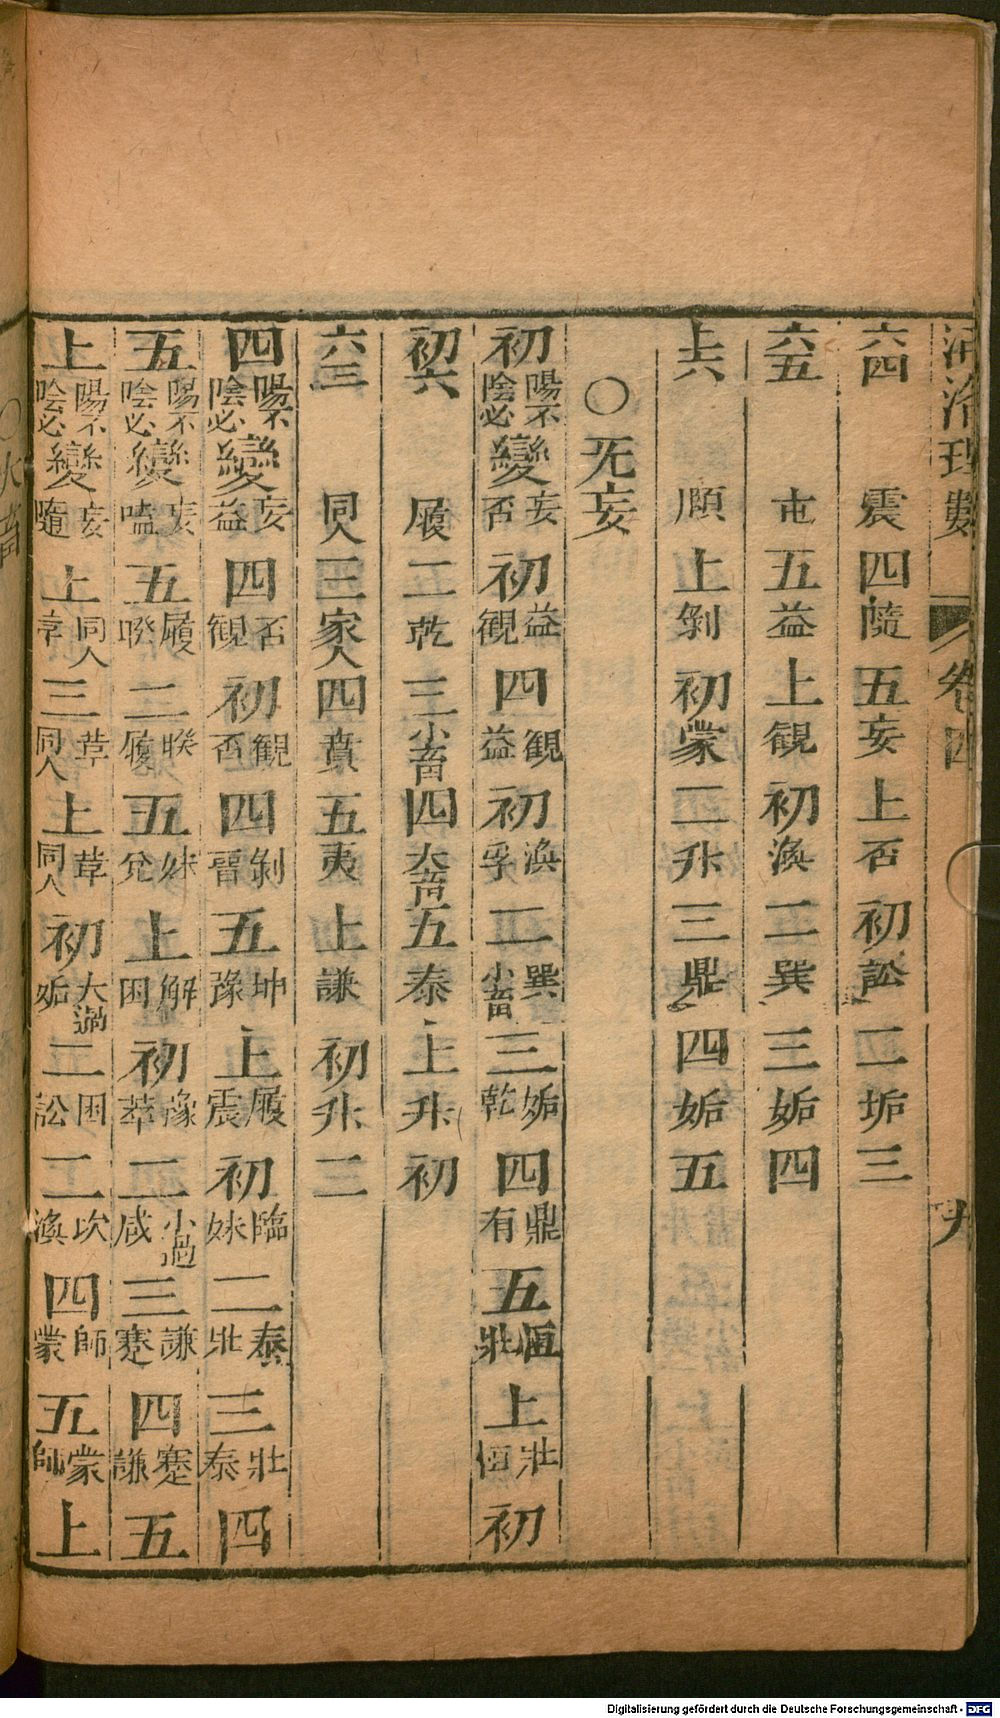 河洛理數 卷四 九
六四 震 四 隨 五 妄 上 否 初 訟 二 垢 三
六五 屯 五 益 上 観 初 渙 二 巽 三 姤 四
上六 頤 上 剝 初 蒙 二 升 三 鼎 四 姤 五
○无妄
初 陽不 陰必 變 妄 否 初 益 観 四 観 益 初 渙 孚 二 巽 小畜 三 姤 乾 四 鼎 有 五 恒 壯 上 壯 恒 初
初六 履 二 乾 三 小畜 四 大畜 五 泰 上 升 初
六三 同人 三 家人 四 賁 五 夷 上 謙 初 升 二
四 陽不 陰必 變 妄 益 四 否 観 初 観 否 四 剝 晋 五 坤 豫 上 履 震 初 臨 妹 二 泰 壯 三 壯 泰 四
五 陽不 陰必 變 妄 嗑 五 履 睽 二 睽 履 五 妹 兌 上 解 困 初 豫 萃 二 小過 咸 三 謙 蹇 四 蹇 謙 五
上 陽不 陰必 變 妄 隨 上 同人 革 三 革 同人 上 革 同人 初 大過 姤 二 困 訟 二 坎 渙 四 師 蒙 五 蒙 師 上
Digitalisierung gefördert durch die Deutsche Forschungsgemeinschaft - DFG